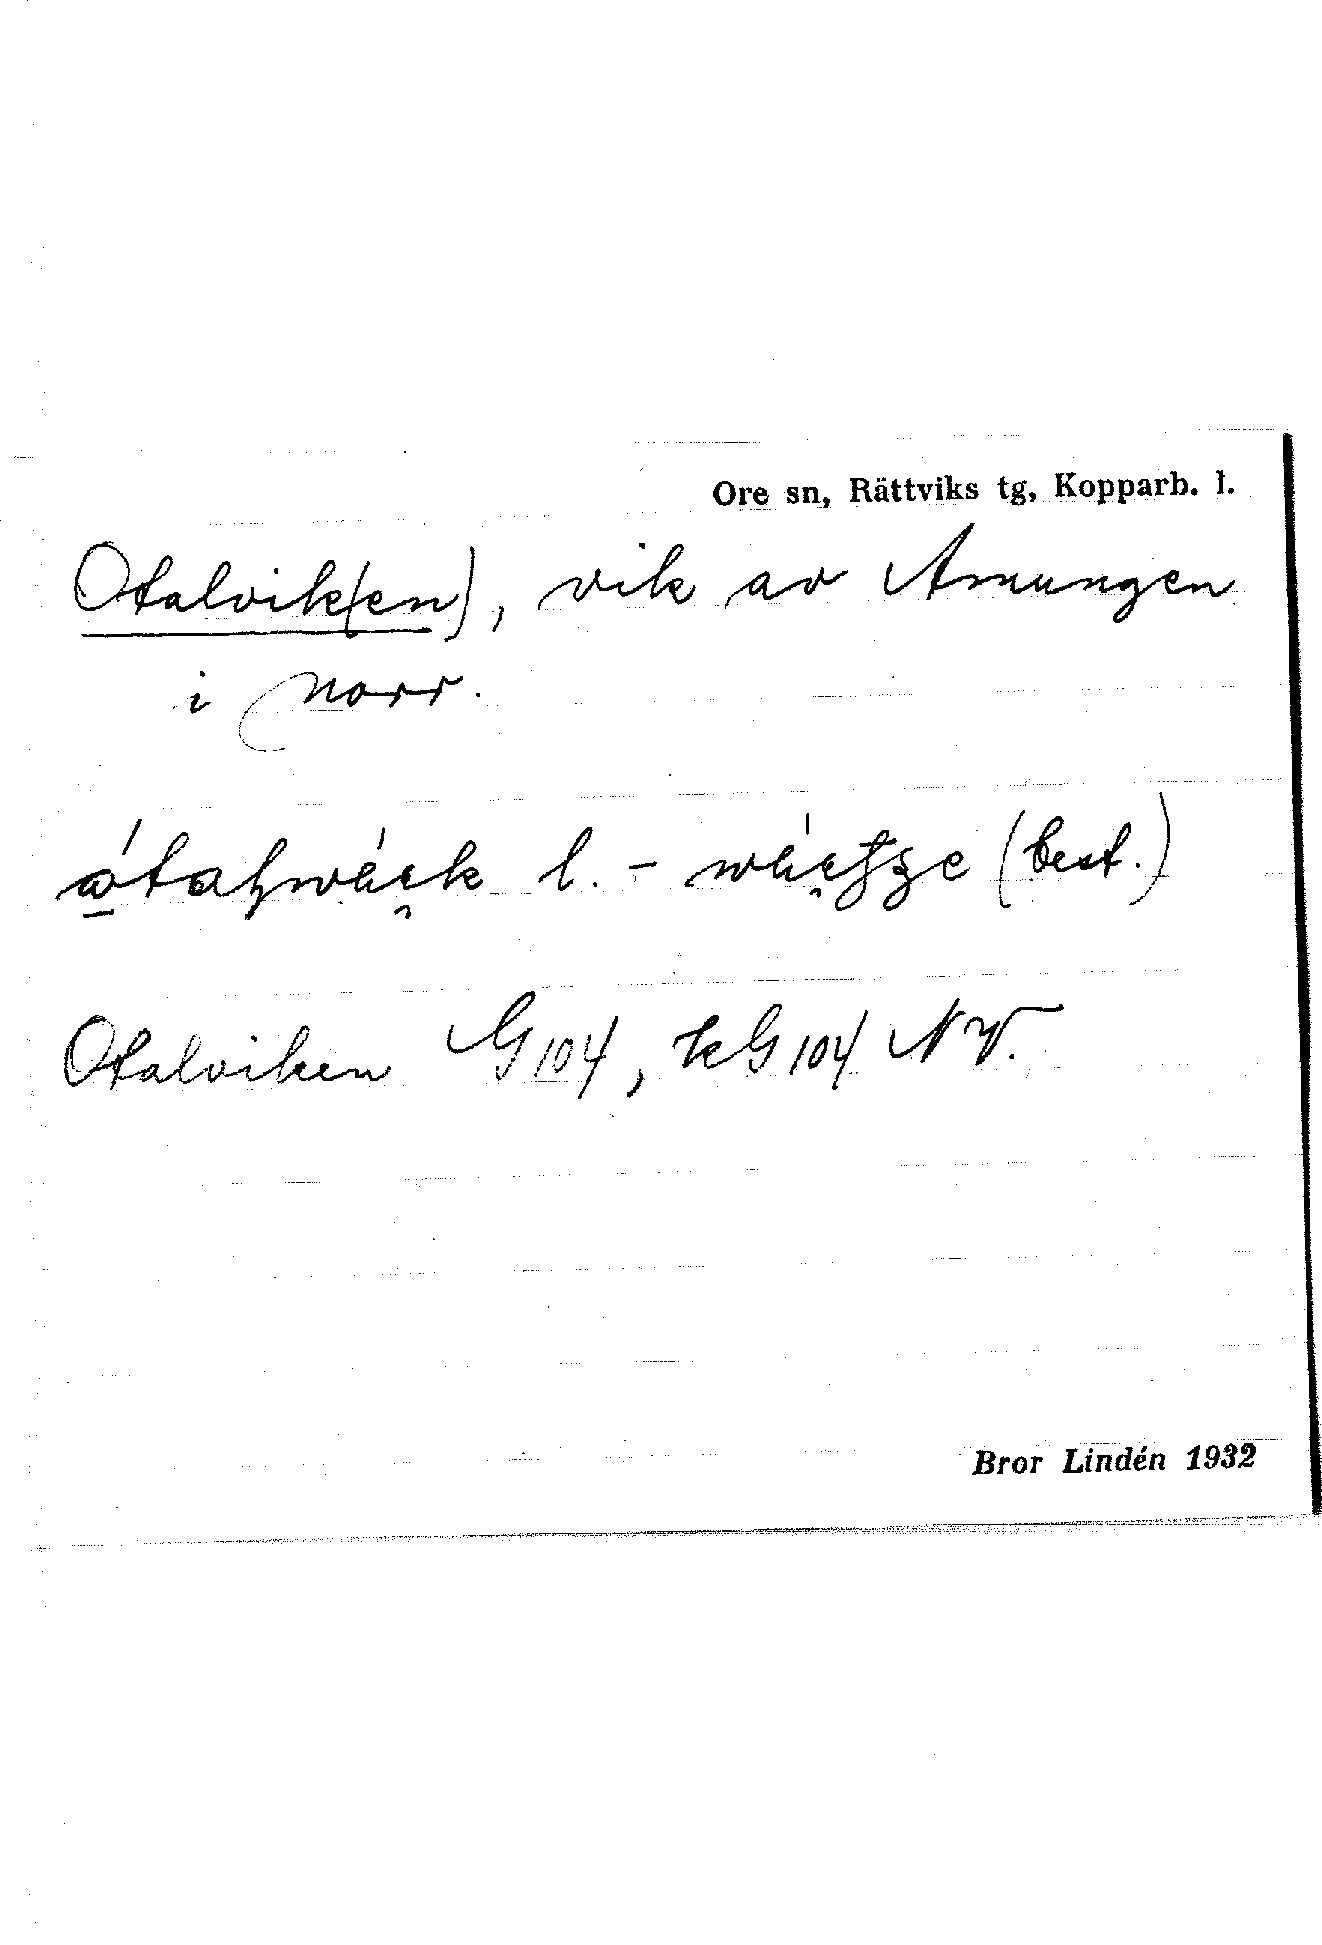 Ore sn, Rättviks tg, Kopparb. l.
Otalvik(en), vik av Amungen
i norr.
l. - (best.)
Otalviken G 104, kG 104 NV.
Bror Lindén 1932